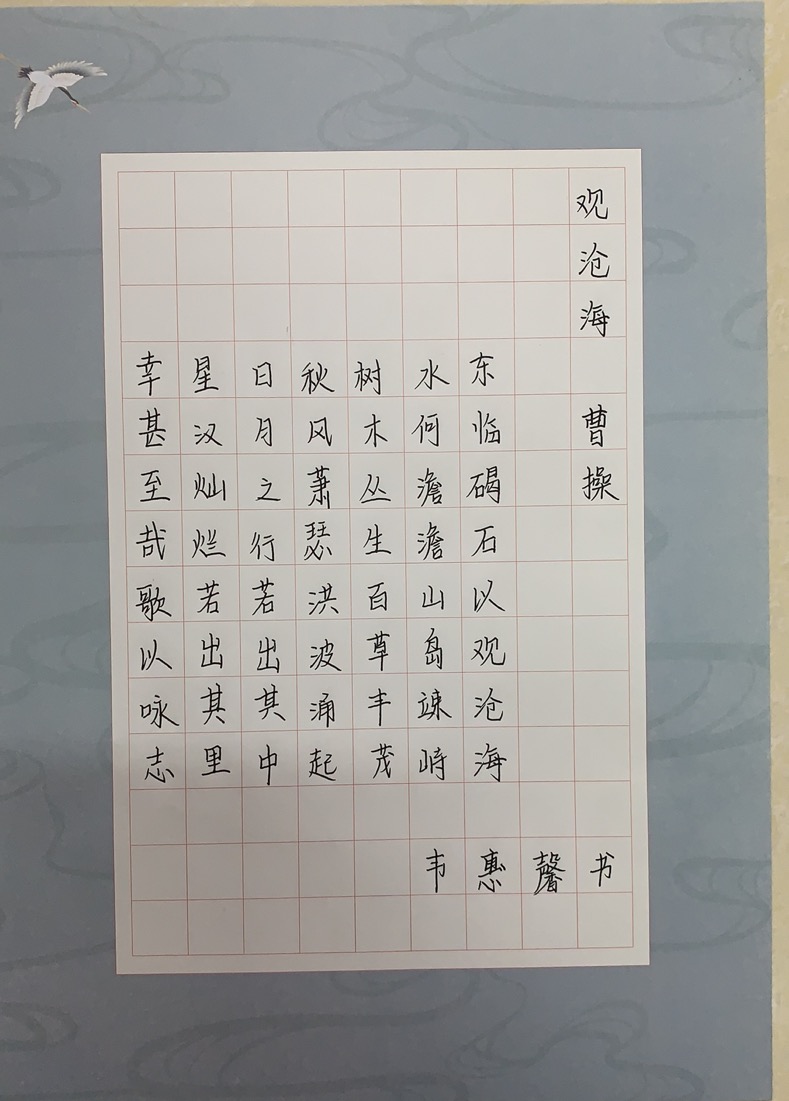 观沧海 曹操
东临碣石以观沧海
水何澹澹山岛竦峙
树木丛生百草丰茂
秋风萧瑟洪波涌起
日月之行若出其中
星汉灿烂若出其里
幸甚至哉歌以咏志
韦惠馨书